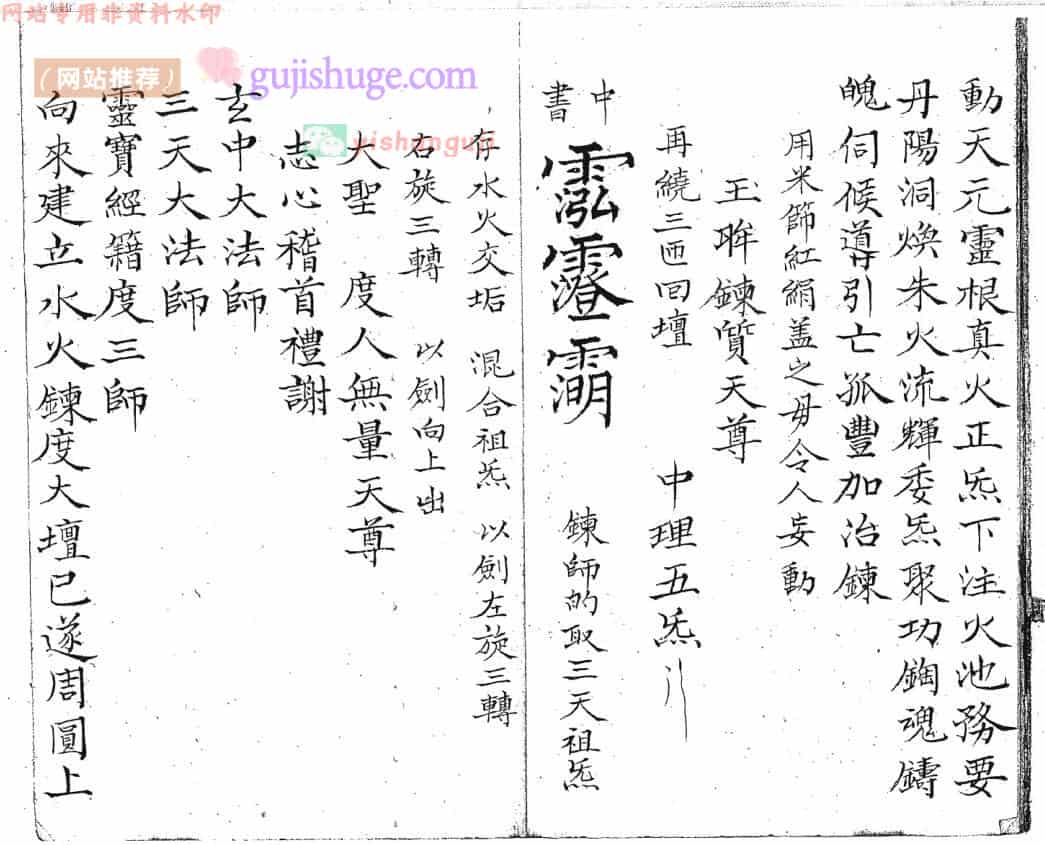 网站专用非资料水印
（网站推荐）
gujishuge.com
yishanguji
動天元靈根真火正炁下注火池務要
丹陽洞煥朱火流輝委炁聚功錭魂鑄
魄伺候導引亡孤豐加冶鍊
用米篩紅絹盖之毋令人妄動
王眸鍊質天尊
再繞三匝回壇 中理五炁
中書 鍊師的取三天祖炁
存水火交垢 混合祖炁 以劍左旋三轉
右旋三轉 以劍向上出
大聖 度人無量天尊
志心稽首禮謝
玄中大法師
三天大法師
靈寶經籍度三師
向來建立水火鍊度大壇已遂周圓上